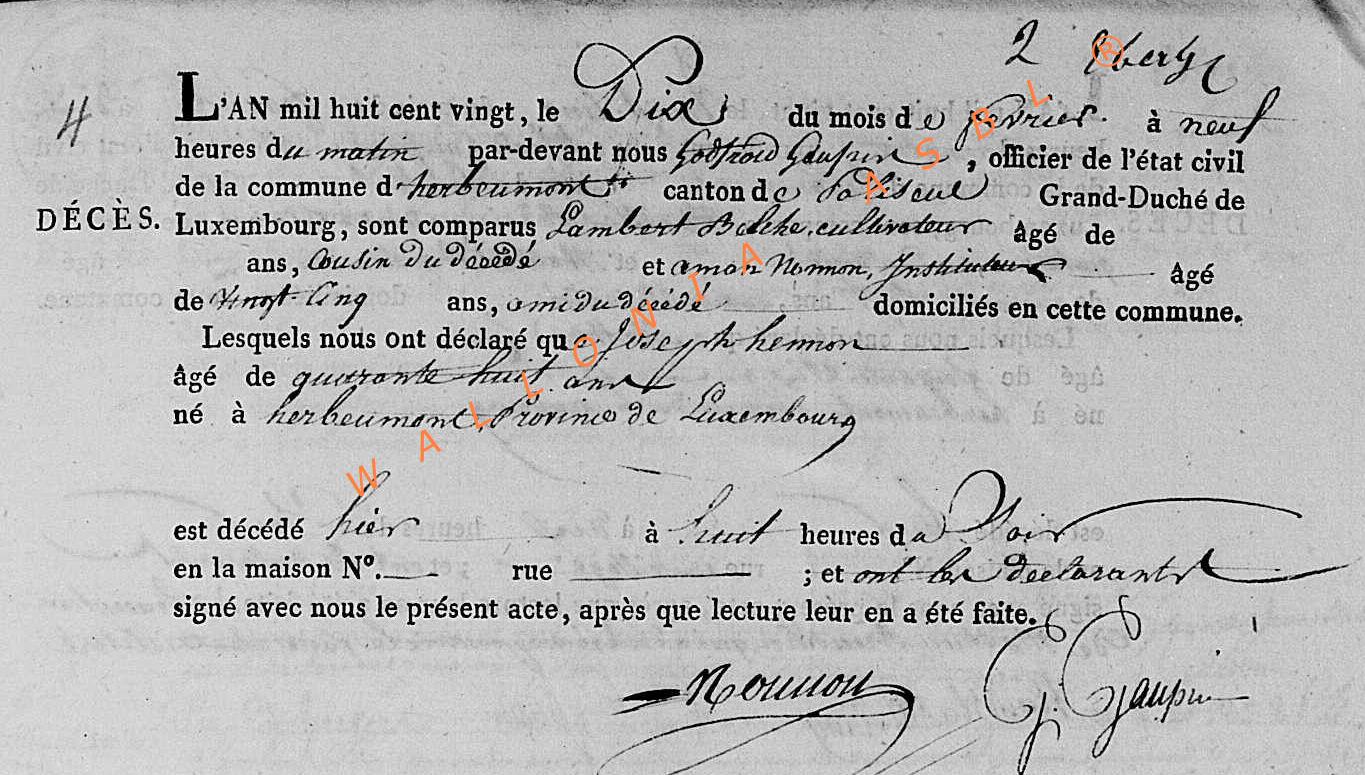 2
4
L'AN mil huit cent vingt, le Dix du mois de fevrier. à neuf
heures du matin par-devant nous Godfroid Gaupin, officier de l'état civil
de la commune d'herbeumont canton de Paliseul Grand-Duché de
DÉCÈS. Luxembourg, sont comparus Lambert cultivateur âgé de
ans, Cousin du décédé et aman Nonnon, Instituteur âgé
de Vingt Cinq ans, ami du décédé domiciliés en cette commune.
Lesquels nous ont déclaré que Joseph hennon
âgé de quarante huit ans
né à herbeumont, Province de Luxembourg
est décédé hier à huit heures du Soir
en la maison N°. rue ; et ont les declarants
signé avec nous le présent acte, après que lecture leur en a été faite.
Nonnon G. Gaupin
WALLONIA ASBL ®